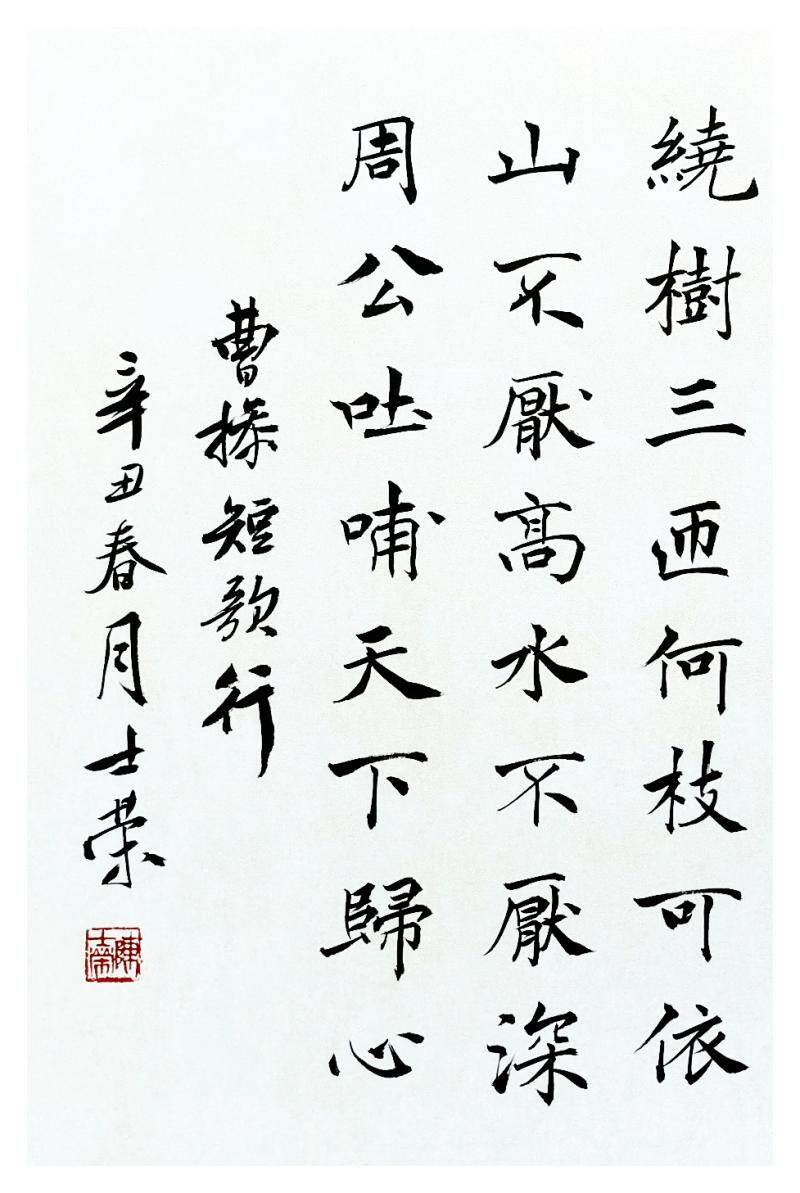 繞樹三匝何枝可依
山不厭高水不厭深
周公吐哺天下歸心
曹操短歌行
辛丑春月士榮
陳士榮